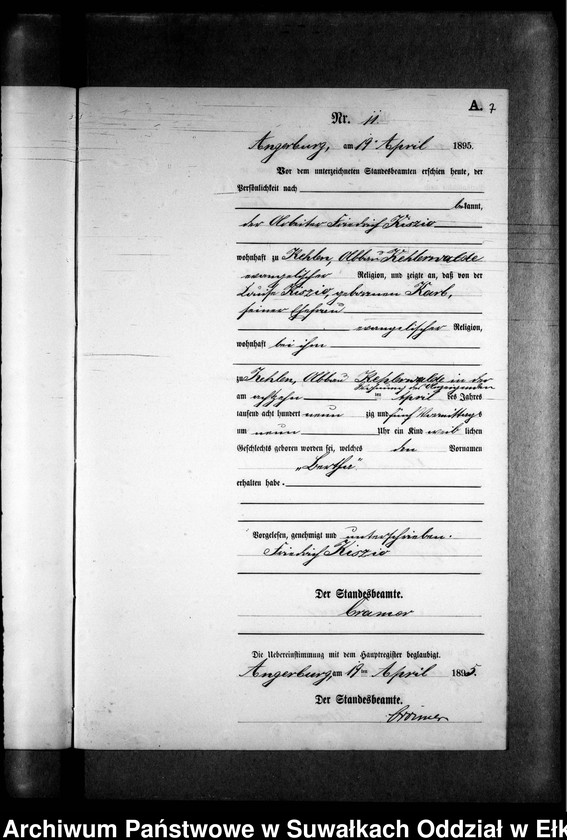 A. 7
Nr. 11
Angerburg, am 19ten April 1895.
Vor dem unterzeichneten Standesbeamten erschien heute, der
Persönlichkeit nach
bekannt,
der Arbeiter Friedrich Kiszio
wohnhaft zu Kehlen, Abbau Kehlerwalde
evangelischer Religion, und zeigte an, daß von der
Louise Kiszio, geborenen Karb,
seiner Ehefrau
evangelischer Religion,
wohnhaft bei ihm
zu Kehlen, Abbau Kehlerwalde in der
Wohnung des Anzeigenden
am achtzehn ten April des Jahres
tausend acht hundert neun zig und fünf Vormittags
um neun Uhr ein Kind weib lichen
Geschlechts geboren worden sei, welches den Vornamen
„Berthe"
erhalten habe.
Vorgelesen, genehmigt und unterschrieben.
Friedrich Kiszio
Der Standesbeamte.
Cramer
Die Uebereinstimmung mit dem Hauptregister beglaubigt.
Angerburg, am 19ten April 1895.
Der Standesbeamte.
Cramer
Archiwum Państwowe w Suwałkach Oddział w Ełk